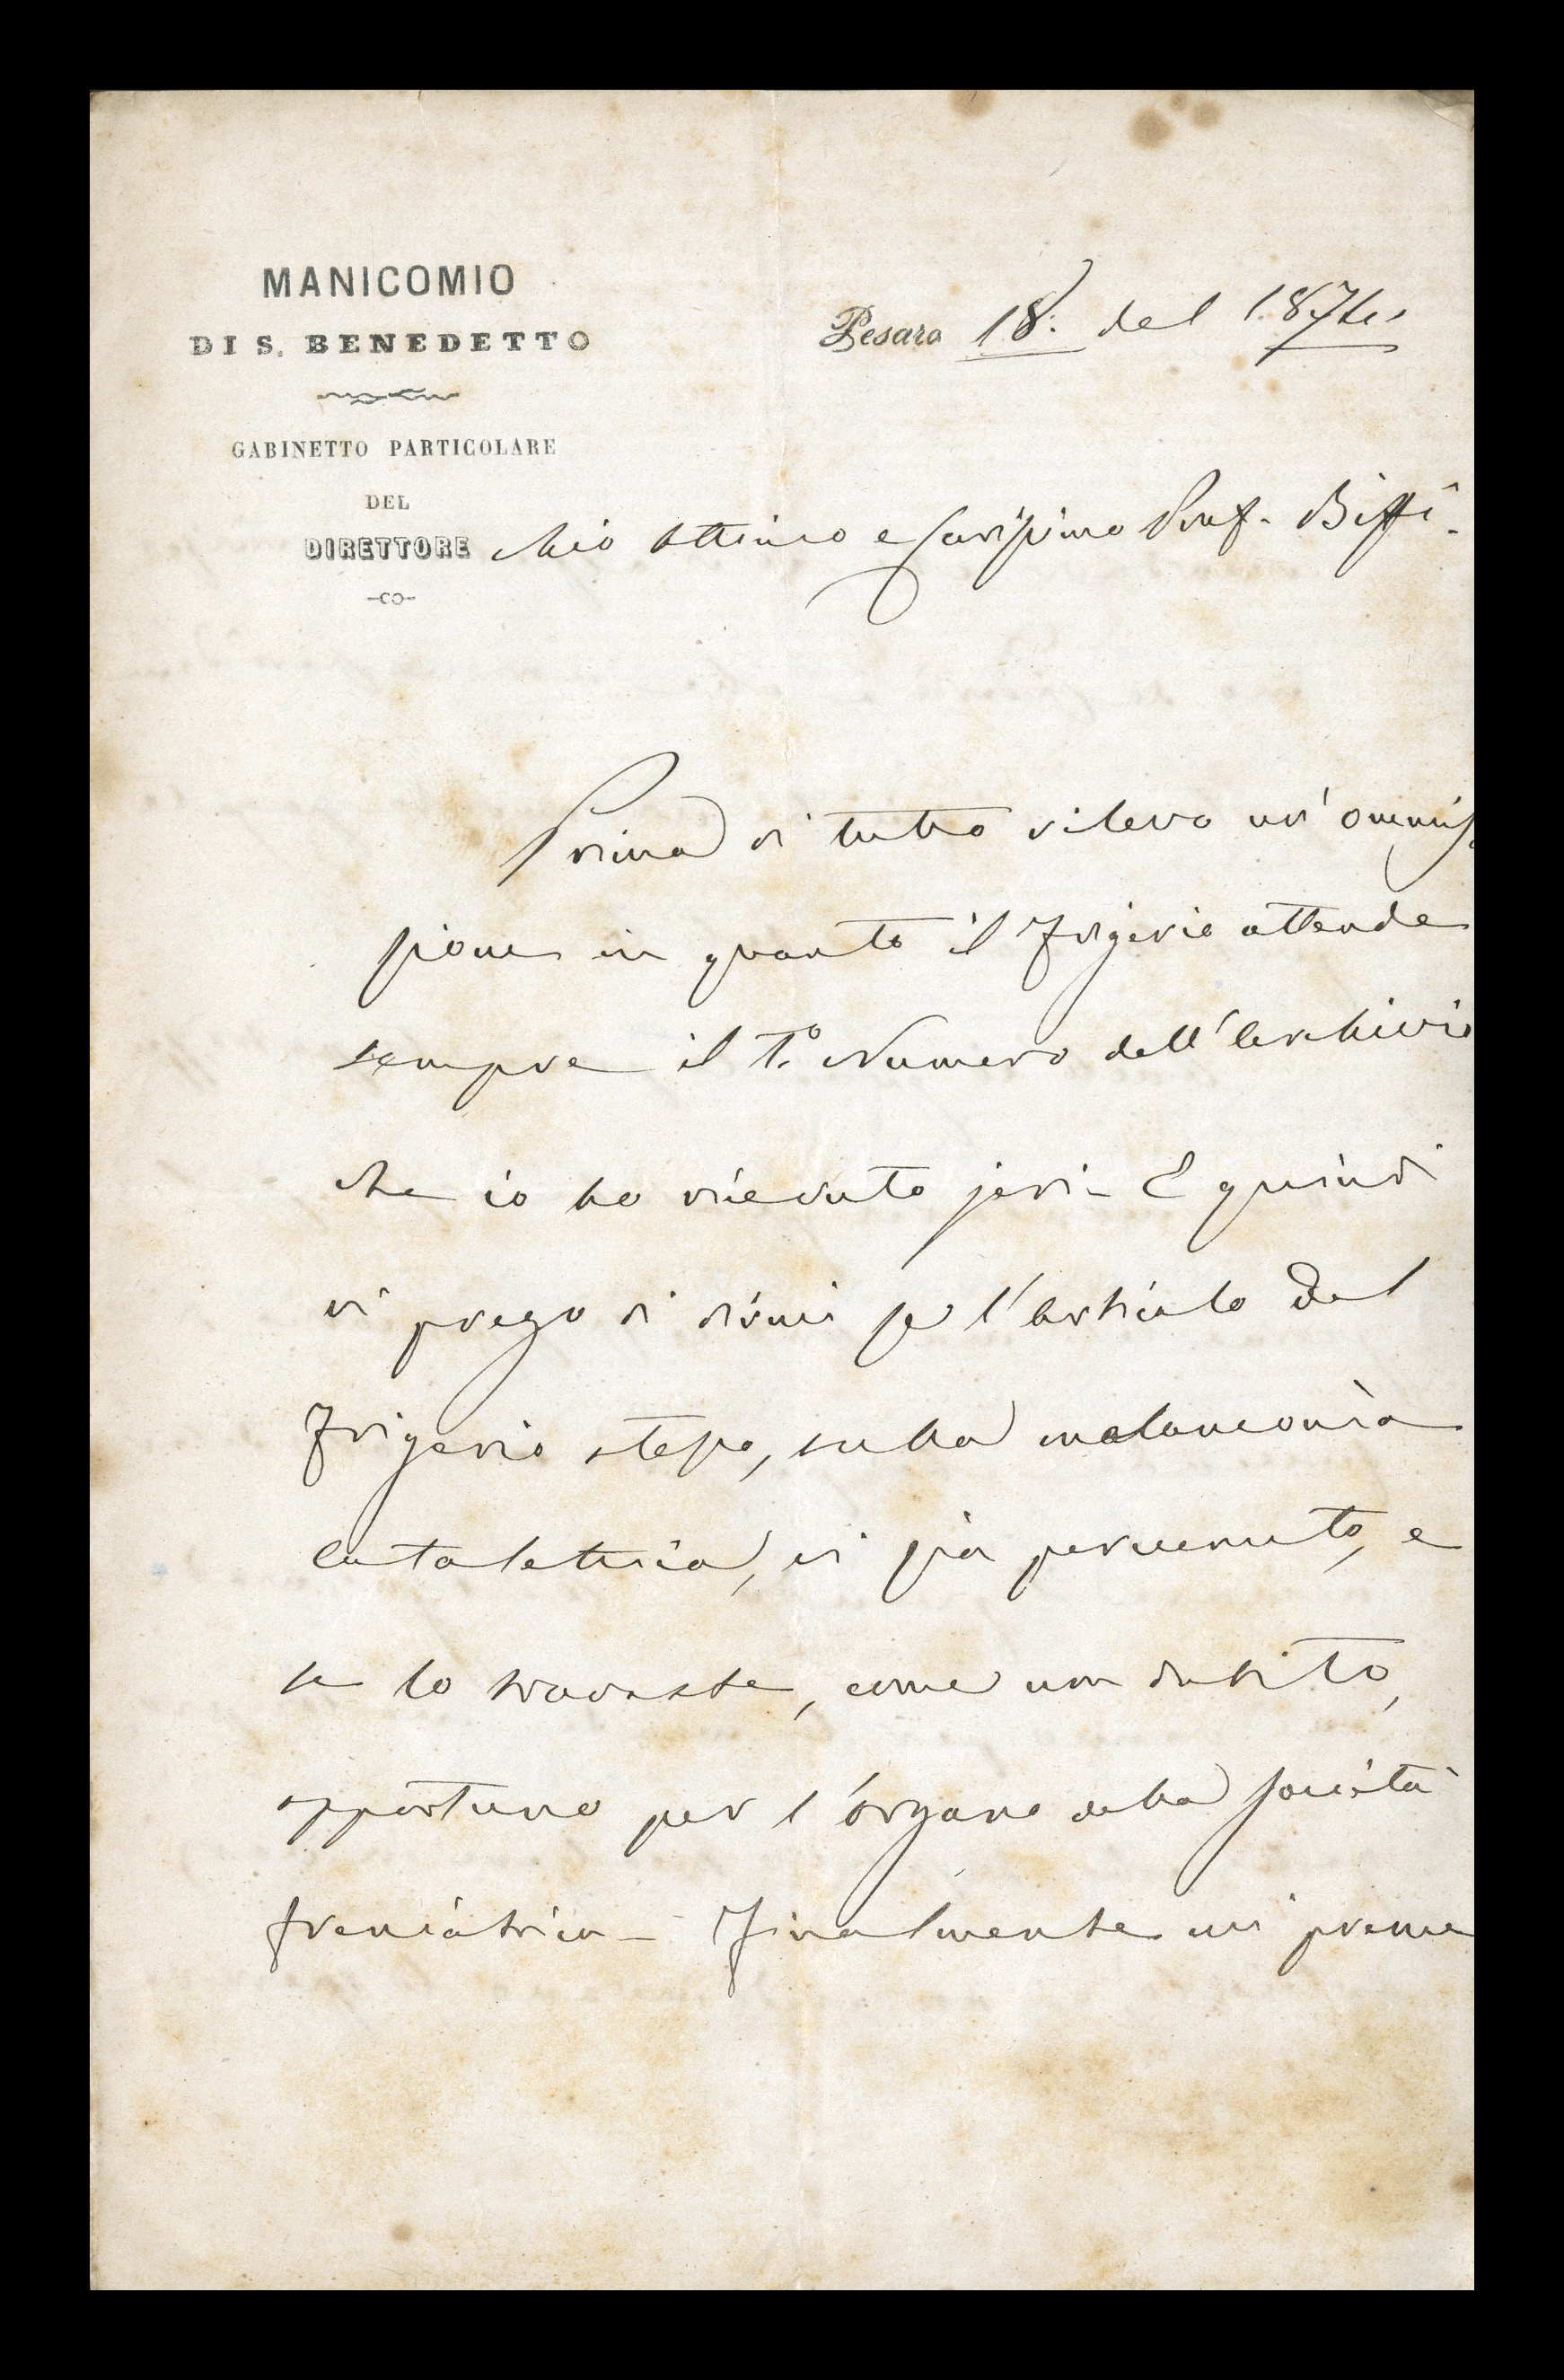 MANICOMIO
DI S. BENEDETTO
GABINETTO PARTICOLARE
DEL
DIRETTORE
Pesaro 18. del 1874.
Mio ottimo e Carissimo Prof. Biffi.
Prima di tutto rilevo un' ommis
sione in quanto il Frigerio attende
sempre il 1.º Numero dell'Archivio
che io ho ricevuto jeri - E quindi
vi prego di dirmi se l'articolo del
Frigerio stesso, sulla melanconia
catalettica, vi sia pervenuto, e
se lo trovaste, come non dubito,
opportuno per l'organo della società
freniatrica - Finalmente mi preme